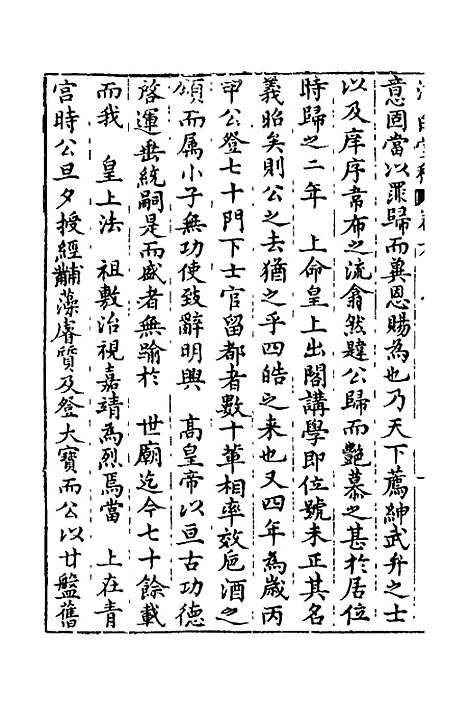 意固當以罪歸而冀恩賜為也乃天下薦紳武弁之士
以及庠序韋布之流翕然韙公歸而艷慕之甚於居位
時歸之二年　上命皇上出閣講學即位號未正其名
義昭矣則公之去猶之乎四皓之来也又四年為歲丙
甲公登七十門下士官留都者數十輩相率效卮酒之
頌而属小子無功使致辭明興　髙皇帝以亘古功德
啓運垂統嗣是而盛者無踰於　世廟迄今七十餘載
而我　皇上法　祖敷治視嘉靖為烈焉當　上在青
宫時公旦夕授經黼藻睿質及登大寳而公以甘盤舊